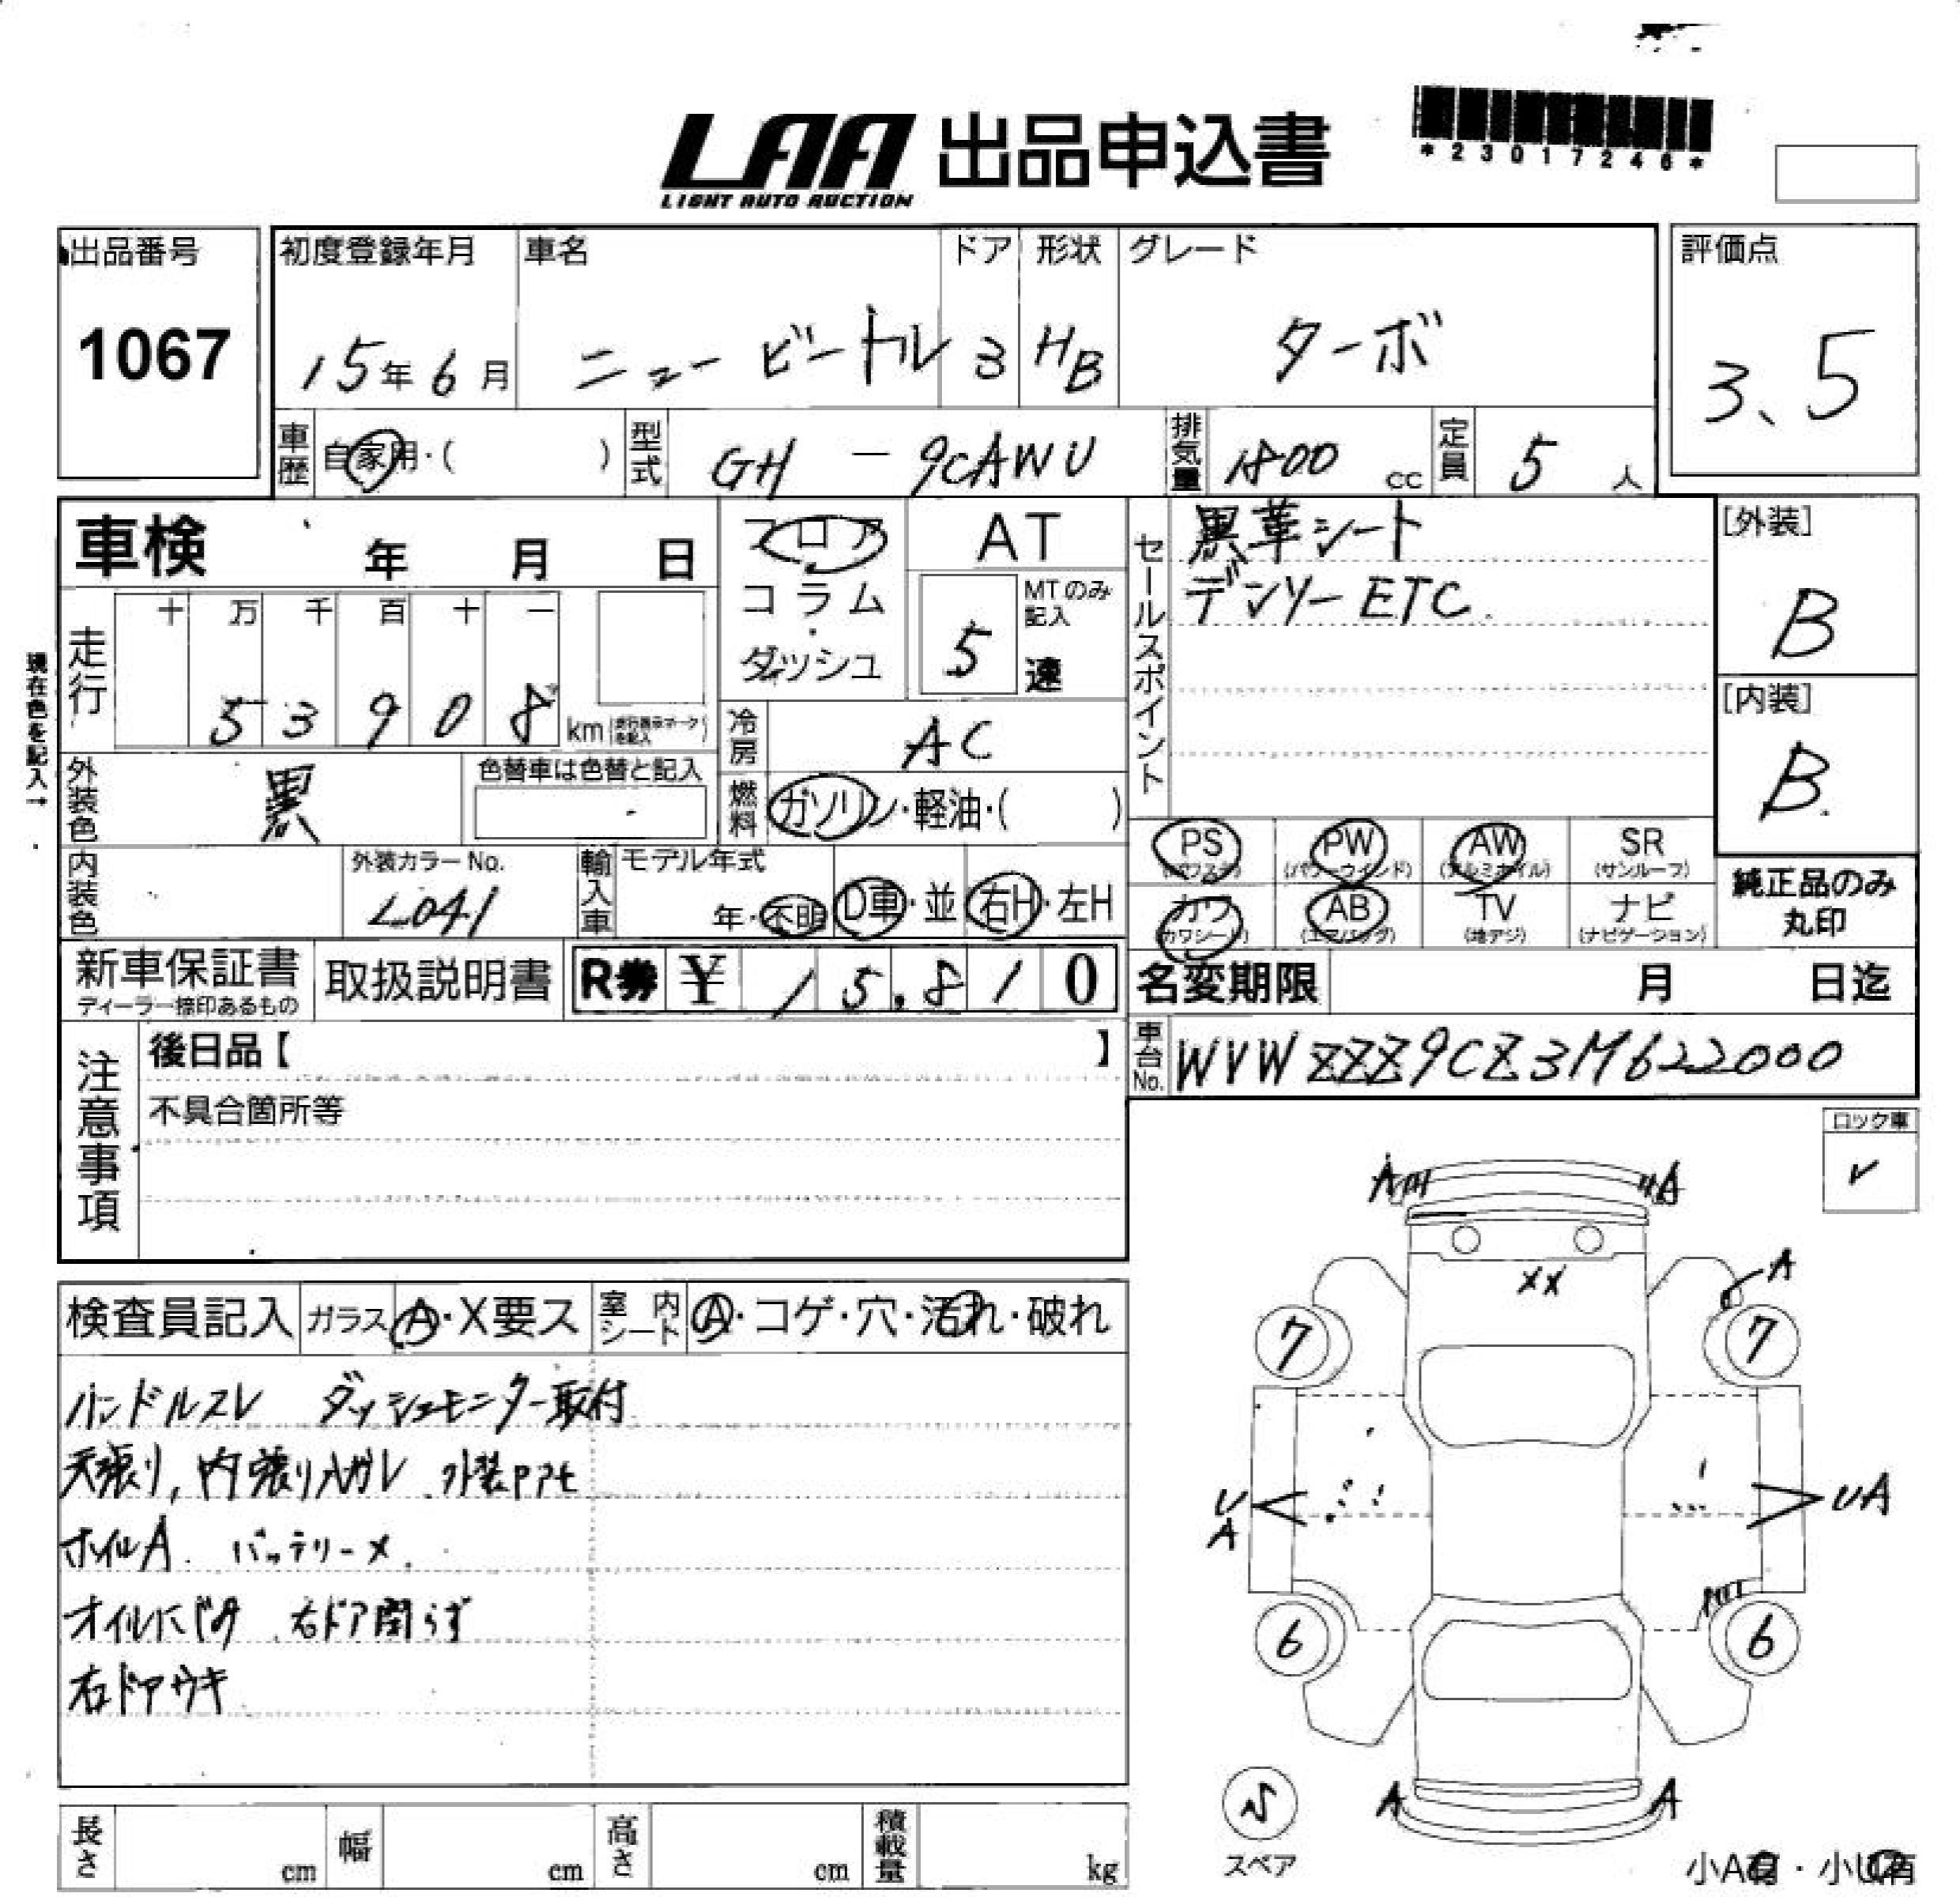 *23017246*
LAA 出品申込書
LIGHT AUTO AUCTION
出品番号 初度登録年月 車名 ドア 形状 グレード 評価点
1067 15年6月 ニュービートル 3 HB ターボ 3、5
車歴 自家用・( ) 型式 GH-9CAWU 排気量 1800cc 定員 5人
車検 年 月 日 フロア AT セールスポイント 黒革シート [外装]
コラム・ダッシュ 5 速 MTのみ記入 デンソーETC. B
現在色を記入→
走行 十 万 千 百 十 一
5 3 9 0 8 km
[内装]
冷房 AC B.
外装色 黒 色替車は色替と記入 燃料 ガソリン・軽油・( )
PS PW AW SR
(パワステ) (パワーウインド) (アルミホイル) (サンルーフ)
内装色 外装カラーNo. L041 輸入車 モデル年式 年・不明 D車・並 右H・左H
カワ AB TV ナビ
(カワシート) (エアバッグ) (地デジ) (ナビゲーション)
純正品のみ丸印
新車保証書 取扱説明書 R券 ¥ 15.810 名変期限 月 日迄
ディーラー捺印あるもの
注意事項 後日品【 】 車台No. WVWZZZ9CZ3M622000
不具合箇所等
ロック車
✓
A A
A
XX
7 7
U A UA
6 6
A A
検査員記入 ガラス A・X要ス 室内シート A・コゲ・穴・汚れ・破れ
ハンドルスレ ダッシュモニター取付
天張り,内張りハガレ 外装
ホイルA. バッテリー×.
オイルにじみ 右ドア開らず
右ドアウキ
スペア
小A有・小U有
長さ cm 幅 cm 高さ cm 積載量 kg